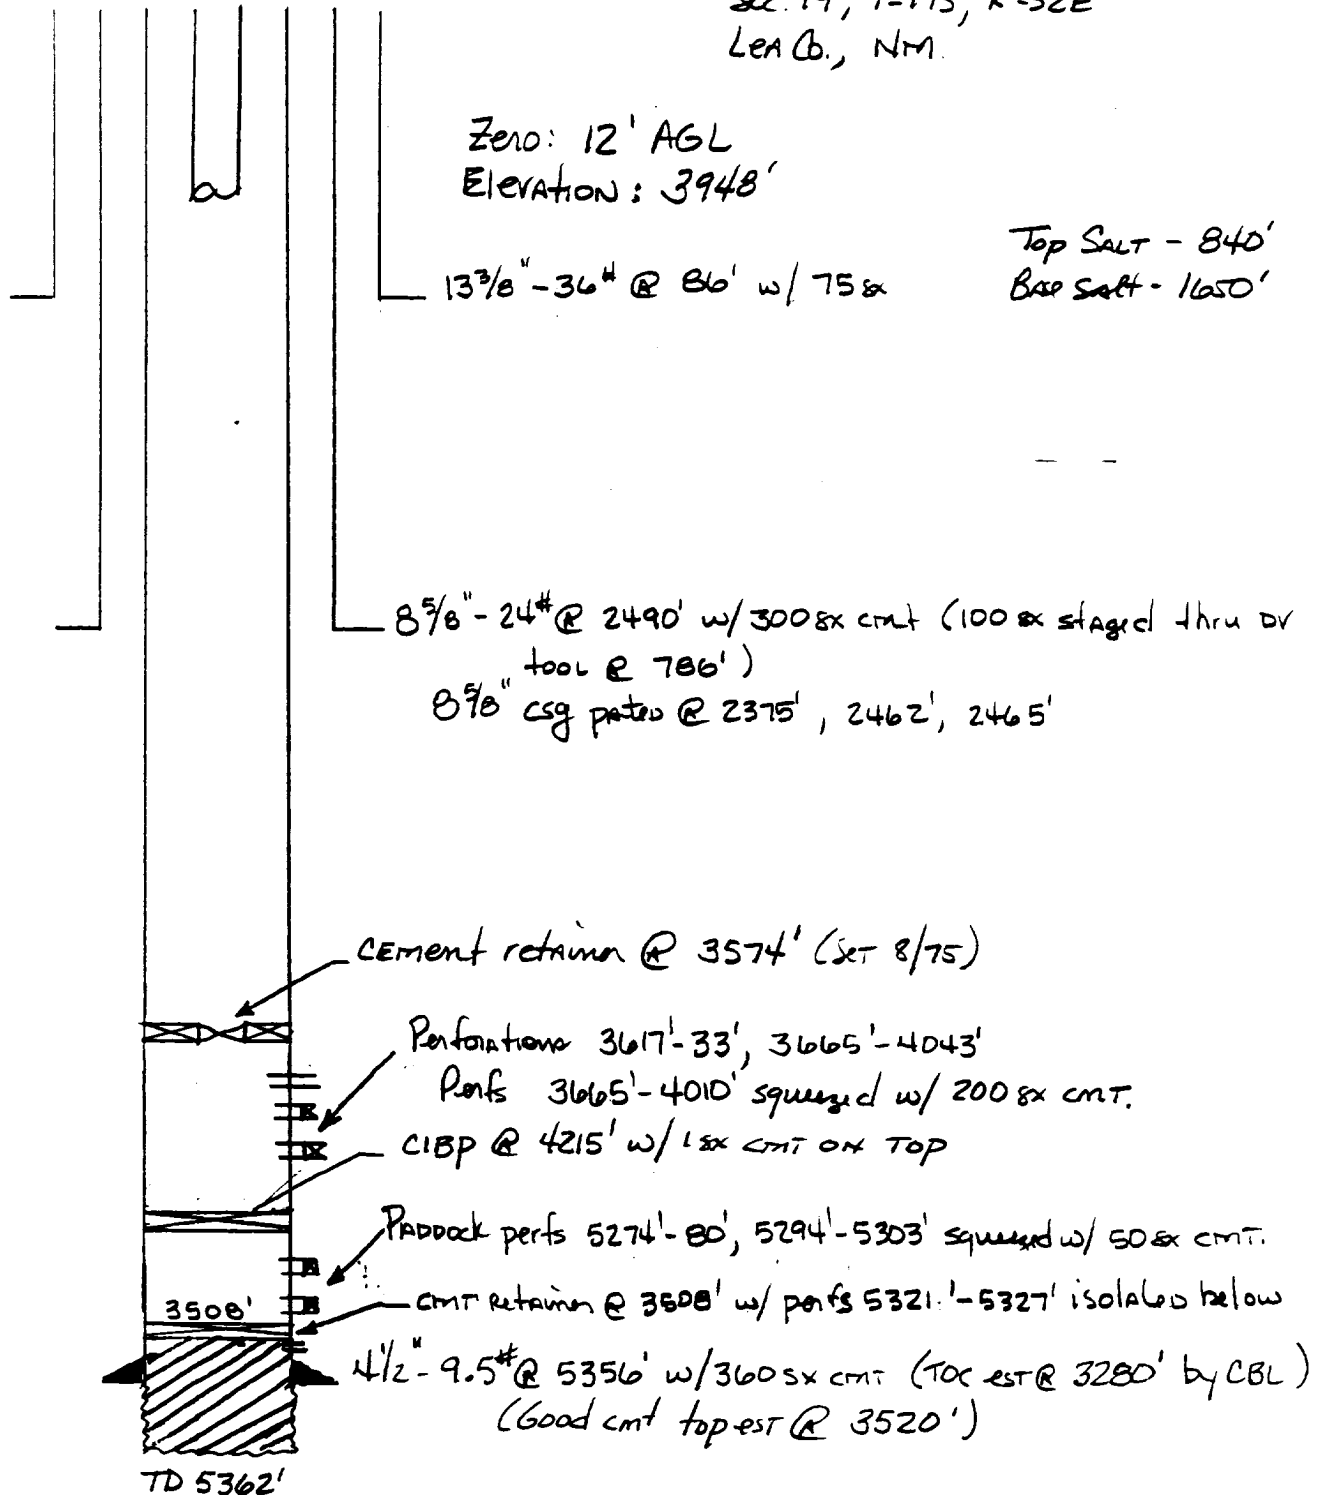 Lea Co., NM.
Zero: 12' AGL
Elevation: 3948'
Top Salt - 840'
Base Salt - 1650'
13 3/8" - 36# @ 86' w/ 75 sx
8 5/8" - 24# @ 2490' w/ 300 sx cmt (100 sx staged thru DV
tool @ 786')
8 5/8" csg @ 2375', 2462', 2465'
Cement retainer @ 3574' (Set 8/75)
Perforations 3617'-33', 3665'-4043'
Perfs 3665'-4010' squeezed w/ 200 sx cmt.
CIBP @ 4215' w/ 1 sx cmt on top
Paddock perfs 5274'-80', 5294'-5303' squeezed w/ 50 sx cmt.
3508'
cmt Retainer @ 3508' w/ perfs 5321.'-5327' isolated below
4 1/2" - 9.5# @ 5356' w/ 360 sx cmt (TOC est @ 3280' by CBL)
(Good cmt top est @ 3520')
TD 5362'